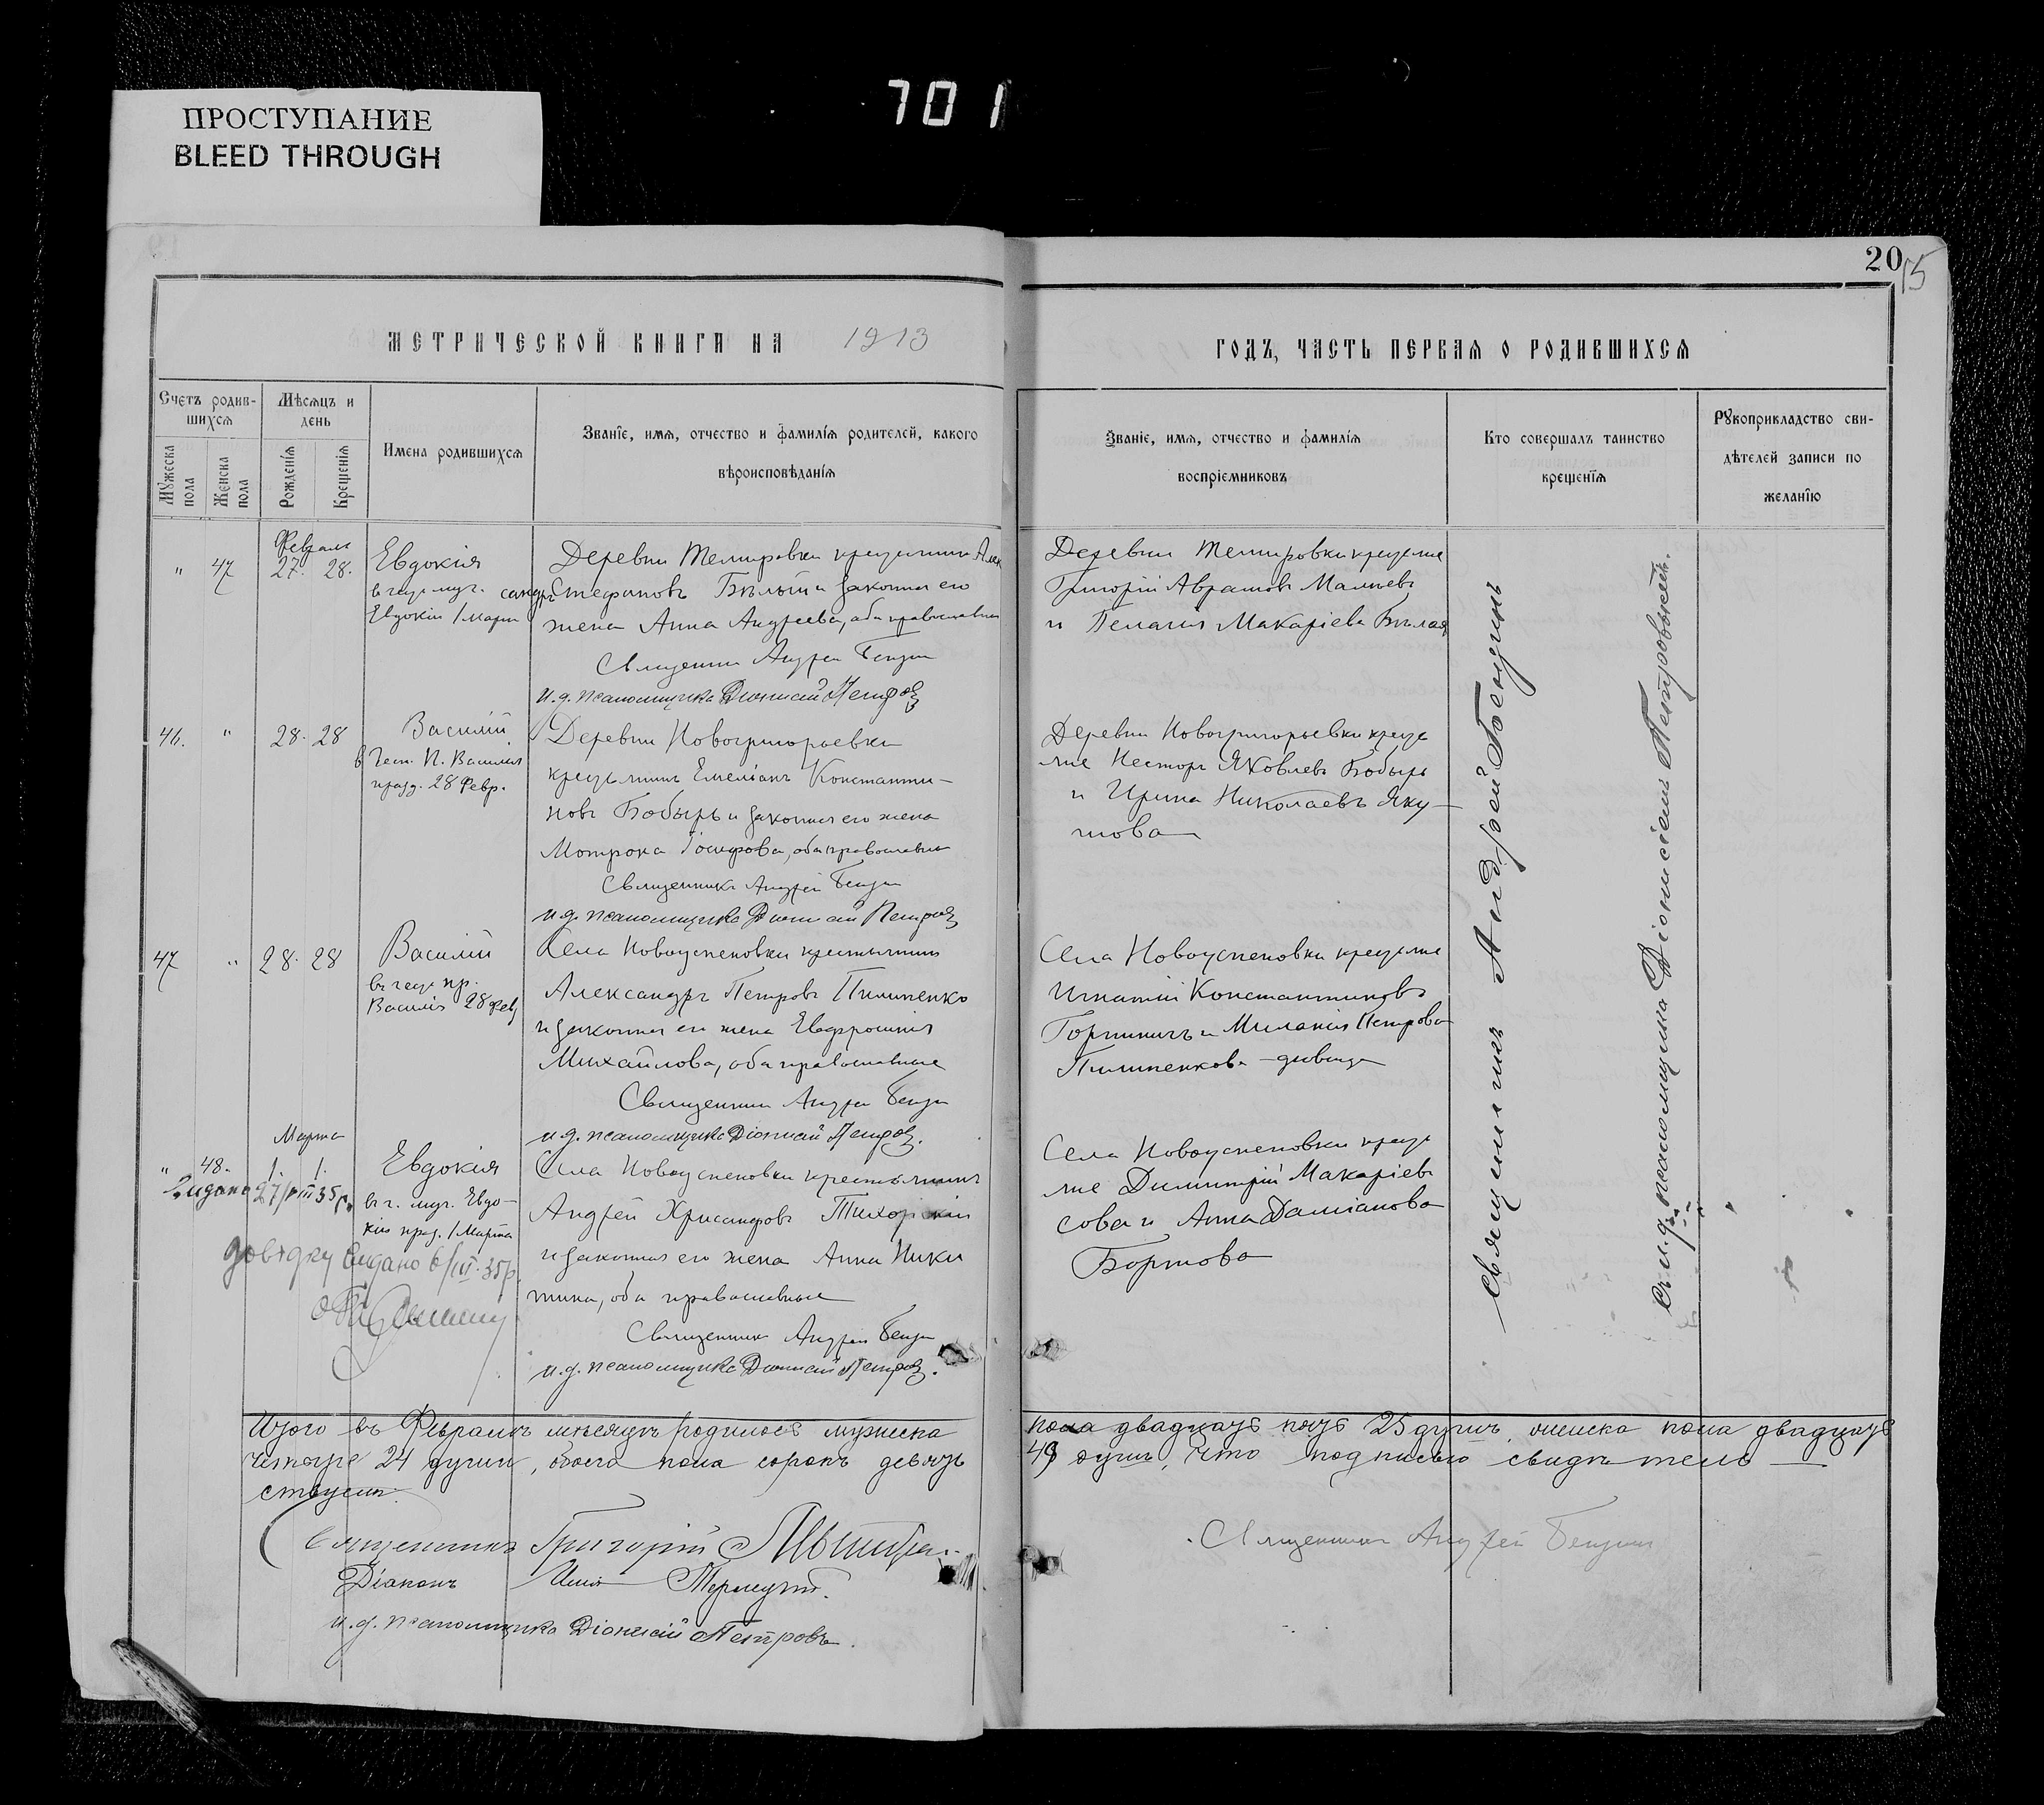 701
ПРОСТУПАНИЕ
BLEED THROUGH
20
15
МЕТРИЧЕСКОЙ КНИГИ НА 1913
ГОДЪ, ЧАСТЬ ПЕРВАЯ О РОДИВШИХСЯ
Счетъ родив-
шихся
Мужеска
пола
Женска
пола
Мѣсяцъ и
день
Рожденія
Крещенія
Имена родившихся
Званіе, имя, отчество и фамилія родителей, какого
вѣроисповѣданія
Званіе, имя, отчество и фамилія
воспріемниковъ
Кто совершалъ таинство
крещенія
Рукоприкладство сви-
дѣтелей записи по
желанію
Февраль
" 47 27. 28.
Евдокія
Евдокіи 1 Марта
Деревни Темировки крестьянинъ Алек
сандръ Стефановъ Бѣлый и законная его
жена Анна Андреева, оба православные
Священникъ Андрей Бенгинъ
и.д. псаломщика Діонисій Петровъ
Деревни Темировки крестьяне
Григорій Аврамовъ
и Пелагія Макаріева Бѣлая
46. " 28. 28
Василій
в чест. П. Василія
празд. 28 Февр.
Деревни Новогригорьевки
крестьянинъ Емеліанъ Константи-
новъ Бобырь и законная его жена
Мотрона Іосифова, оба православные
Священникъ Андрей Бенгинъ
и.д. псаломщика Діонисій Петровъ
Деревни Новогригорьевки кресть
яне Несторъ Яковлевъ Бобырь
и Ирина Николаевъ Яку-
това
47 " 28. 28
Василій
въ чест пр.
Василія 28 Фев
Села Новоуспеновки крестьянинъ
Александръ Петровъ Пилипенко
и законная его жена Евфросинія
Михайлова, оба православные
Священникъ Андрей Бенгинъ
и.д. псаломщика Діонисій Петровъ.
Села Новоуспеновки крестьяне
Игнатій Константиновъ
и Миланія Петрова
Пилипенкова - дѣвица
Марта
" 48. 1. 1.
Видано 27/VIII 35р.
Евдокія
въ ч. муч. Евдо-
кіи празд. 1 Марта
довідку видано 6/III 35р.
Села Новоуспеновки крестьянинъ
Андрей Хрисанфовъ Тихорскій
и законная его жена Анна Ники
тина, оба православные
Священникъ Андрей Бенгинъ
и.д. псаломщика Діонисій Петровъ.
Села Новоуспеновки кресть
яне Димитрій Макаріевъ
Сова и Анна Даміанова
Бортова
Священникъ Андрей Бенгинъ
съ и.д. псаломщика Діонисіемъ Петровымъ.
Итого въ Февралѣ мѣсяцѣ родилось мужеска пола двадцать пять 25 душъ, женска пола двадцать
четыре 24 души, обоего пола сорокъ девять 49 душъ, что подписью свидѣтель-
ствуемъ.
Священникъ Григорій
Діаконъ
и.д. псаломщика Діонисій Петровъ.
Священникъ Андрей Бенгинъ